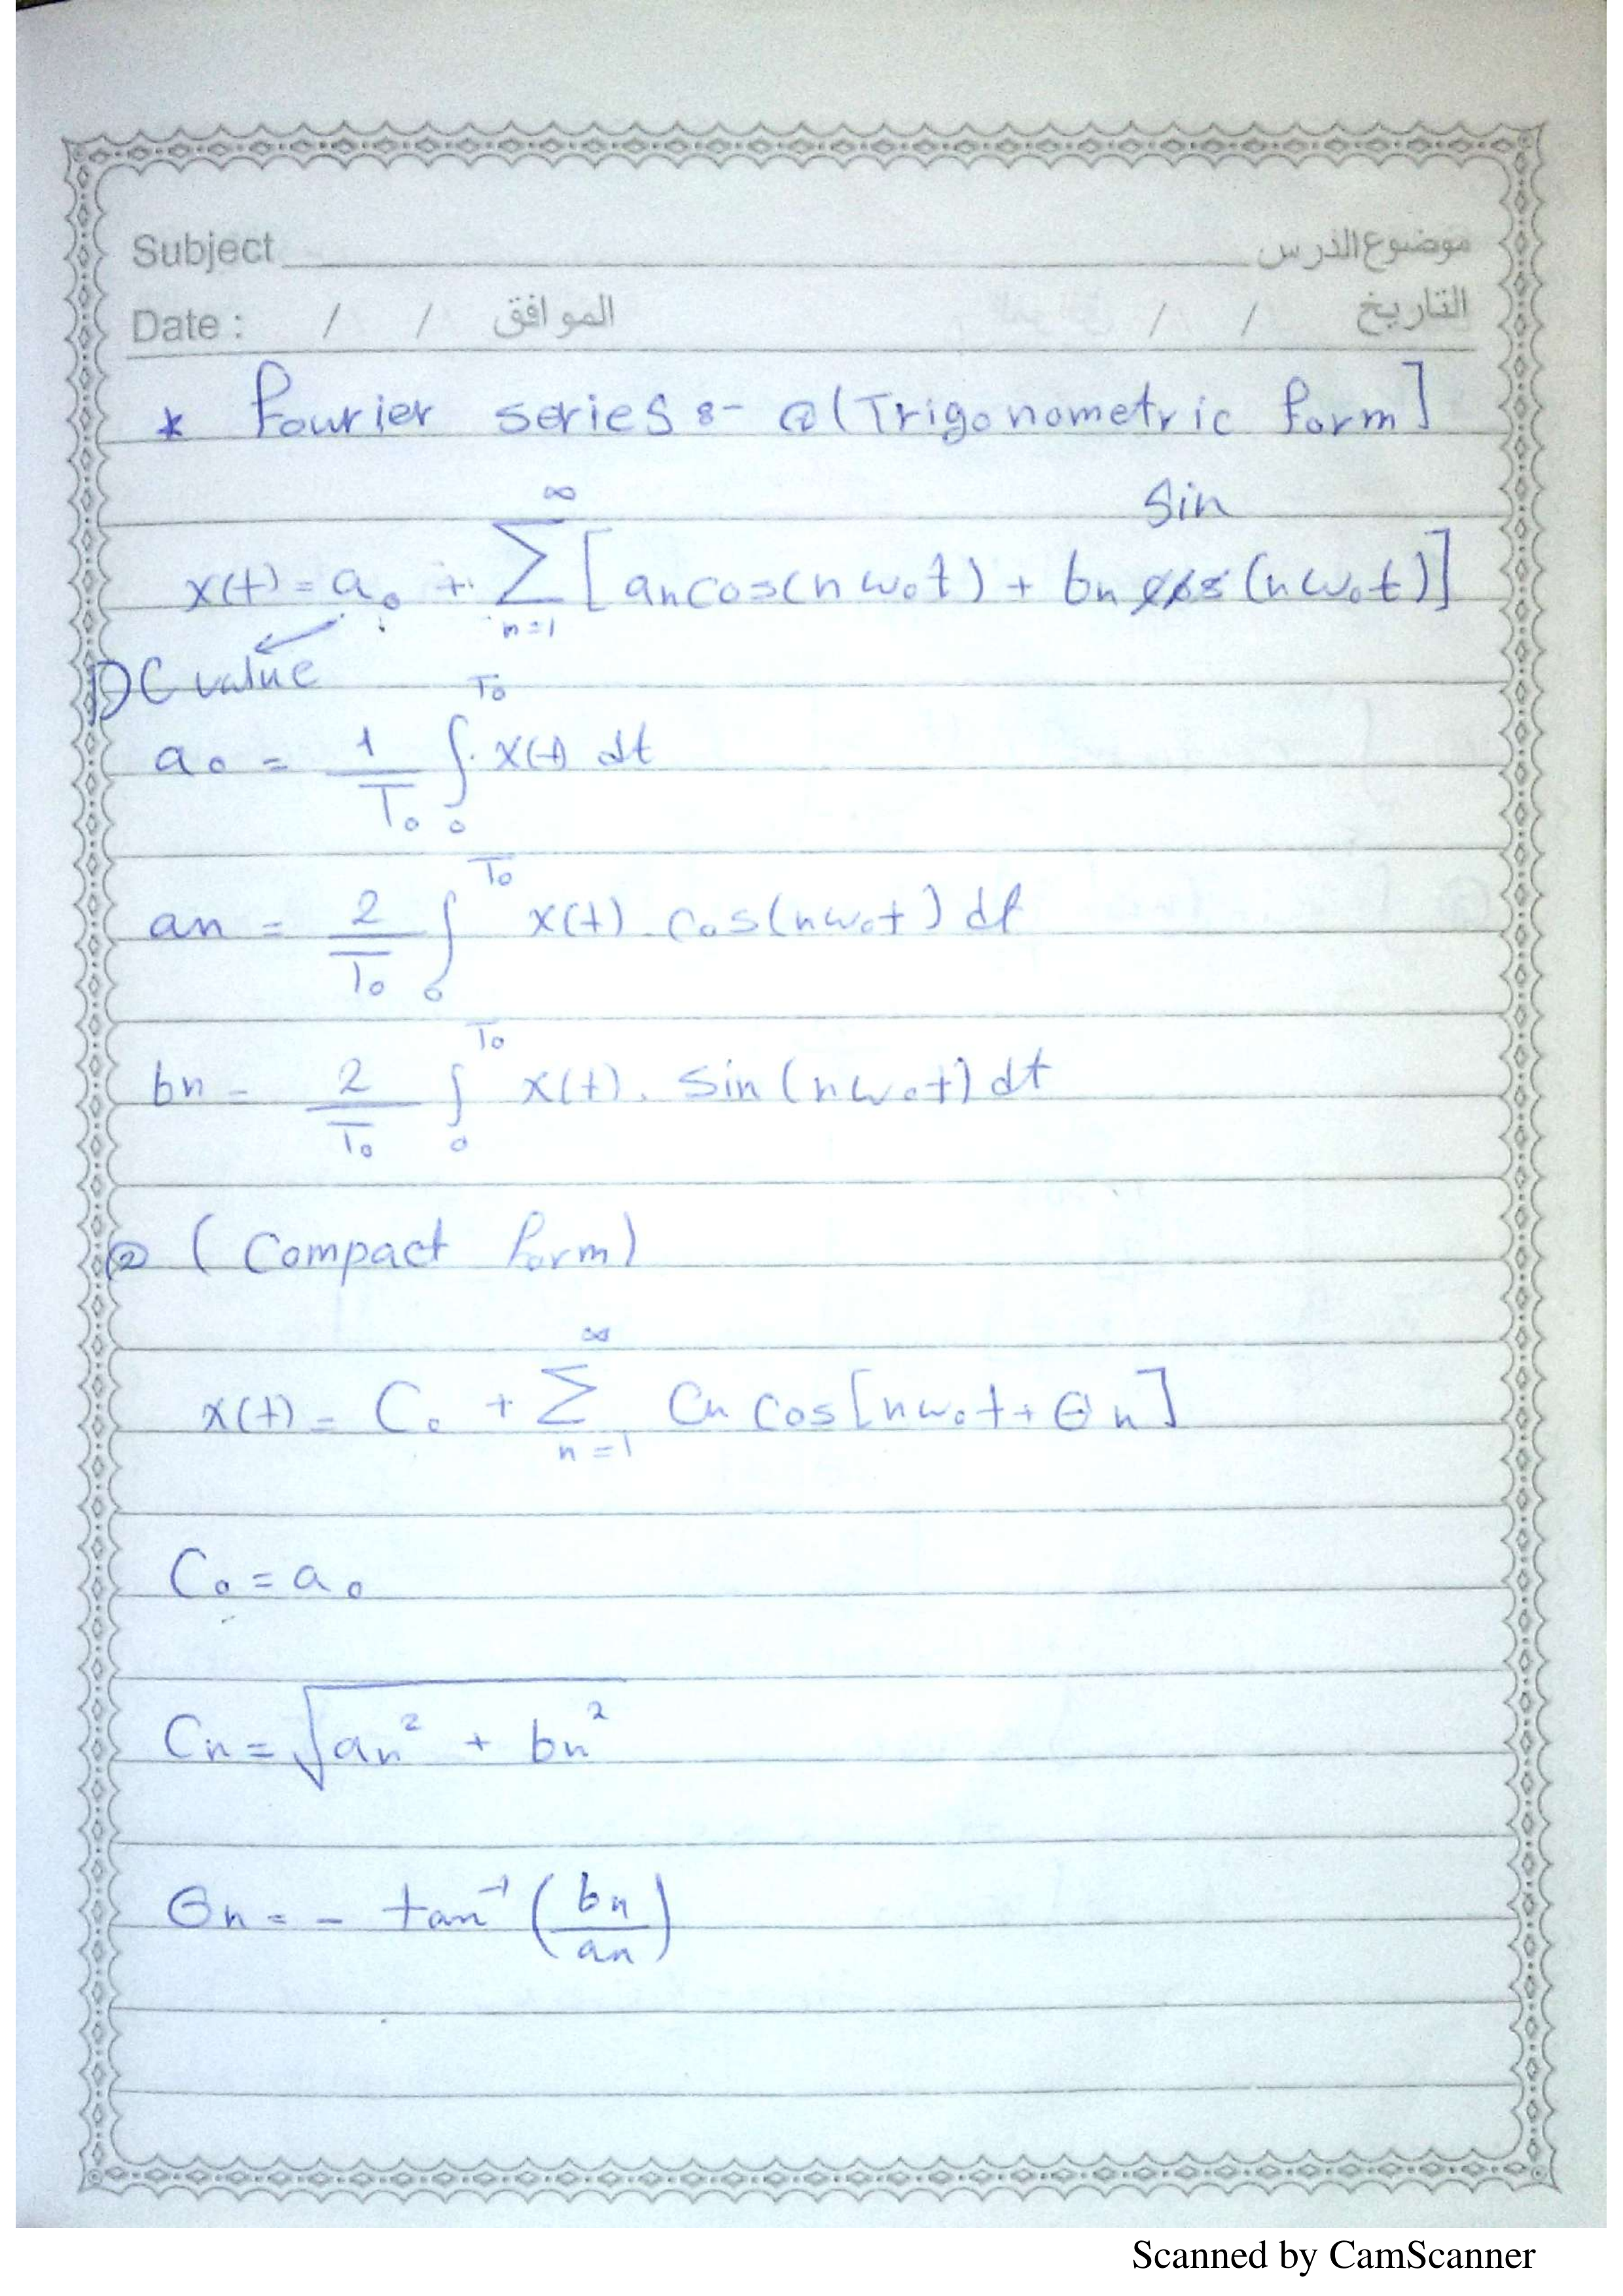 Subject موضوع الدرس
Date : / / الموافق / / التاريخ
* Fourier series :- ① (Trigonometric form]
sin
x(t) = a₀ + ∑ₙ₌₁^∞ [an cos(nω₀t) + bn cos (nω₀t)]
DC value
a₀ = 1/T₀ ∫₀^T₀ x(t) dt
an = 2/T₀ ∫₀^T₀ x(t) . cos(nω₀t) dt
bn = 2/T₀ ∫₀^T₀ x(t) . sin (nω₀t) dt
② (Compact form)
x(t) = C₀ + ∑ₙ₌₁^∞ Cn cos[nω₀t + θn]
C₀ = a₀
Cn = √(an² + bn²)
θn = - tan⁻¹ (bn/an)
Scanned by CamScanner